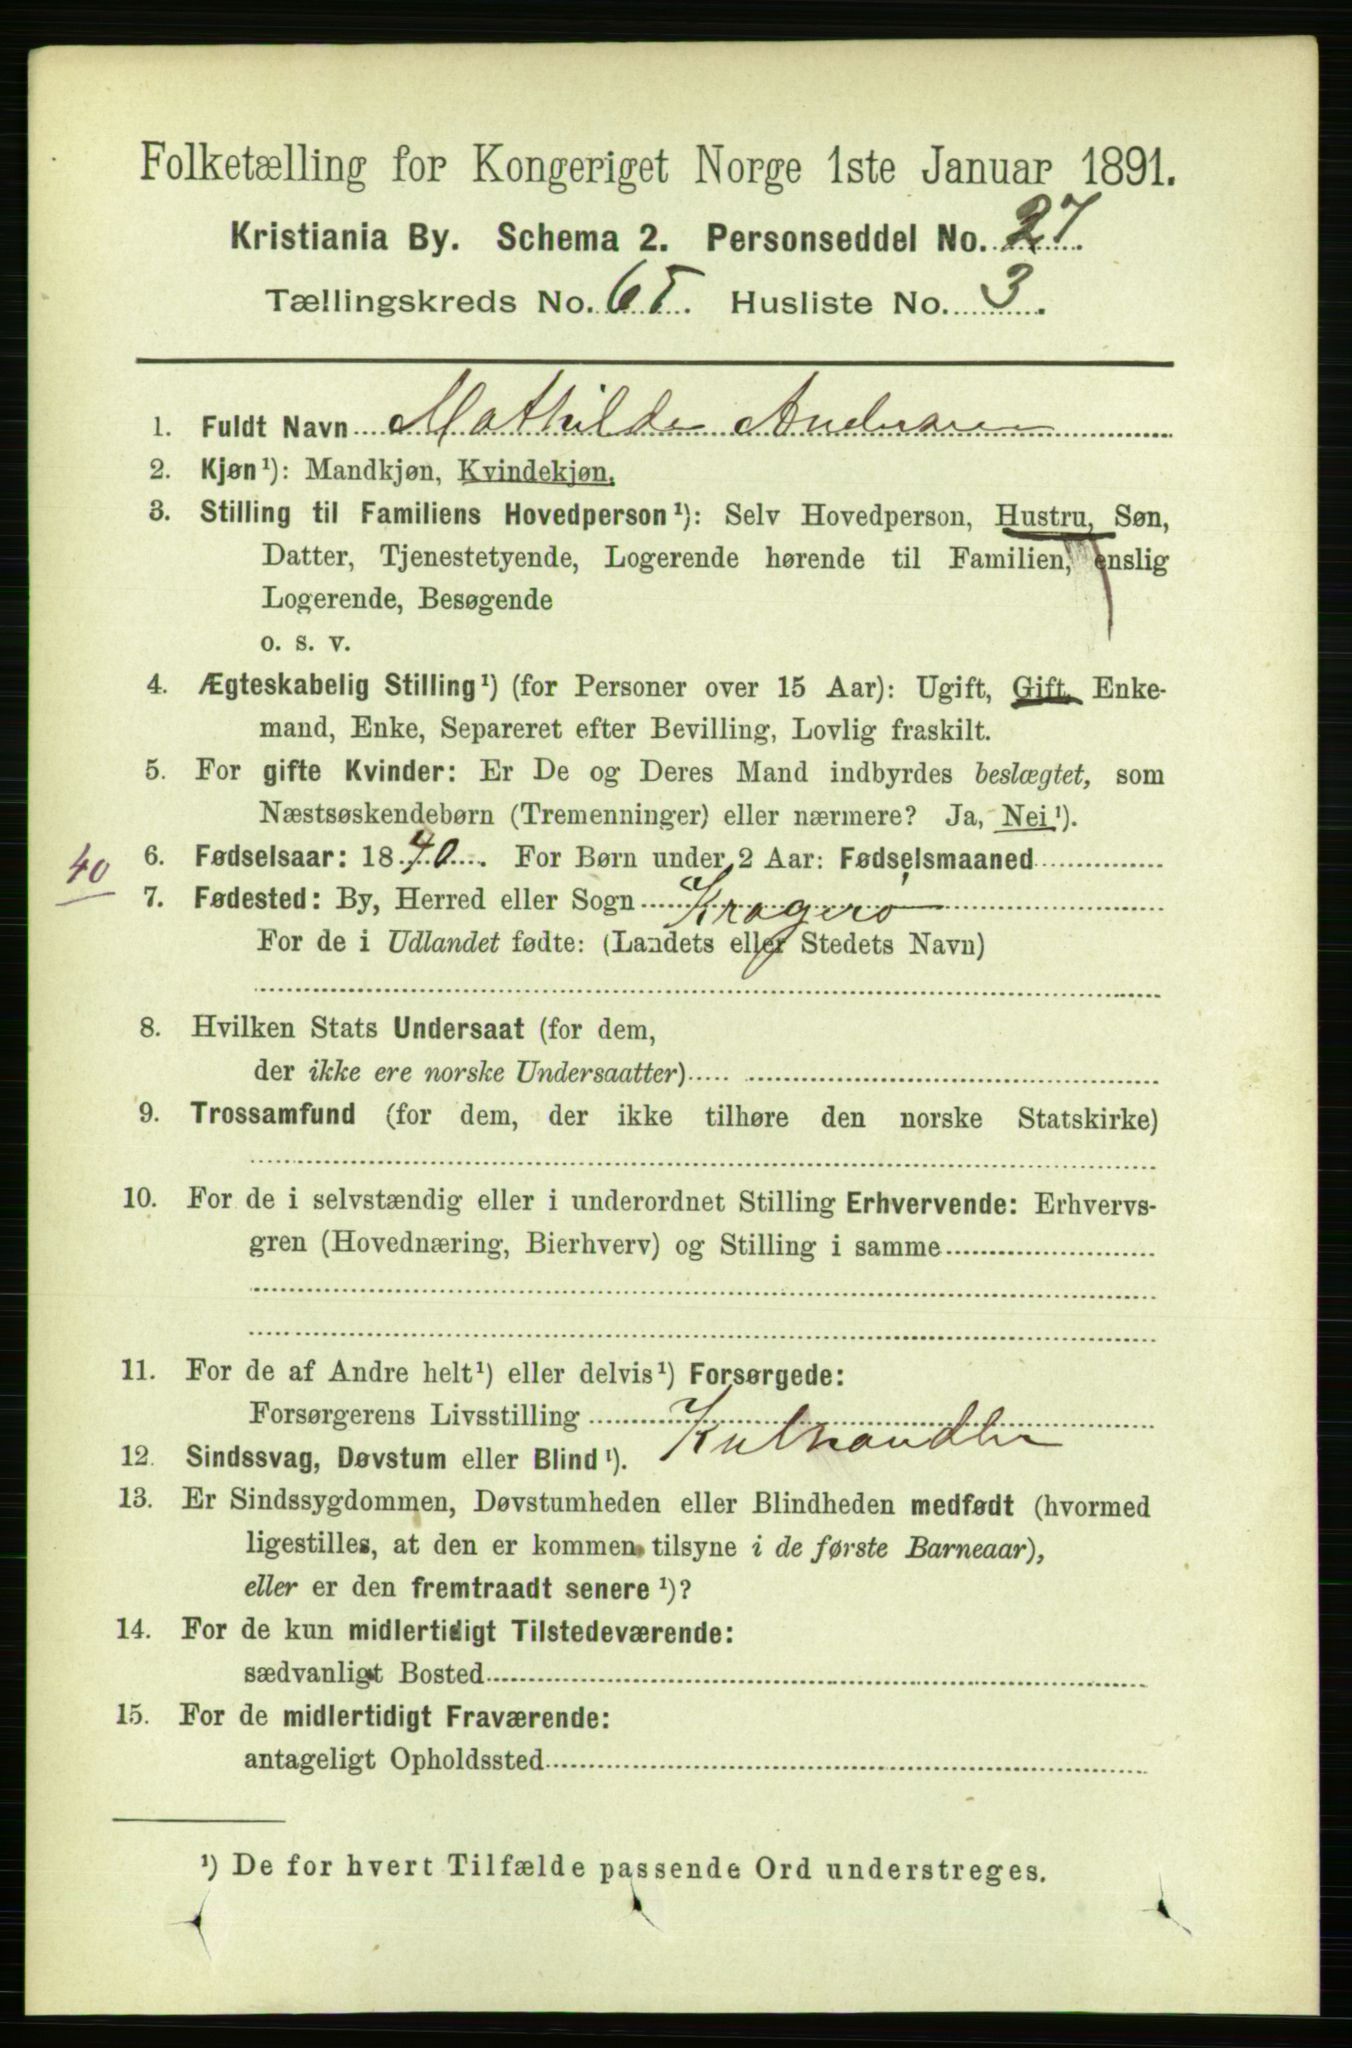 Folketælling for Kongeriget Norge 1ste Januar 1891.
Kristiania By. Schema 2. Personseddel No. 27.
Tællingskreds No. 65. Husliste No. 3.
1. Fuldt Navn Mathilde Andersen
2. Kjøn¹): Mandkjøn, Kvindekjøn.
3. Stilling til Familiens Hovedperson¹): Selv Hovedperson, Hustru, Søn,
Datter, Tjenestetyende, Logerende hørende til Familien, enslig
Logerende, Besøgende
o. s. v.
4. Ægteskabelig Stilling¹) (for Personer over 15 Aar): Ugift, Gift, Enke-
mand, Enke, Separeret efter Bevilling, Lovlig fraskilt.
5. For gifte Kvinder: Er De og Deres Mand indbyrdes beslægtet, som
Næstsøskendebørn (Tremenninger) eller nærmere? Ja, Nei¹).
40
6. Fødselsaar: 1840. For Børn under 2 Aar: Fødselsmaaned
7. Fødested: By, Herred eller Sogn Kragerø
For de i Udlandet fødte: (Landets eller Stedets Navn)
8. Hvilken Stats Undersaat (for dem,
der ikke ere norske Undersaatter)
9. Trossamfund (for dem, der ikke tilhøre den norske Statskirke)
10. For de i selvstændig eller i underordnet Stilling Erhvervende: Erhvervs-
gren (Hovednæring, Bierhverv) og Stilling i samme
11. For de af Andre helt¹) eller delvis¹) Forsørgede:
Forsørgerens Livsstilling Kulhandler
12. Sindssvag, Døvstum eller Blind¹).
13. Er Sindssygdommen, Døvstumheden eller Blindheden medfødt (hvormed
ligestilles, at den er kommen tilsyne i de første Barneaar),
eller er den fremtraadt senere¹)?
14. For de kun midlertidigt Tilstedeværende:
sædvanligt Bosted
15. For de midlertidigt Fraværende:
antageligt Opholdssted
¹) De for hvert Tilfælde passende Ord understreges.